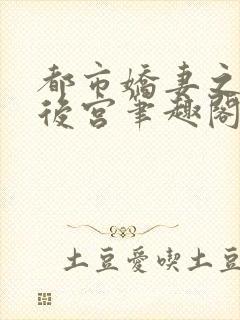 都市嬌妻之
後宮筆趣閣
土豆愛喫土豆